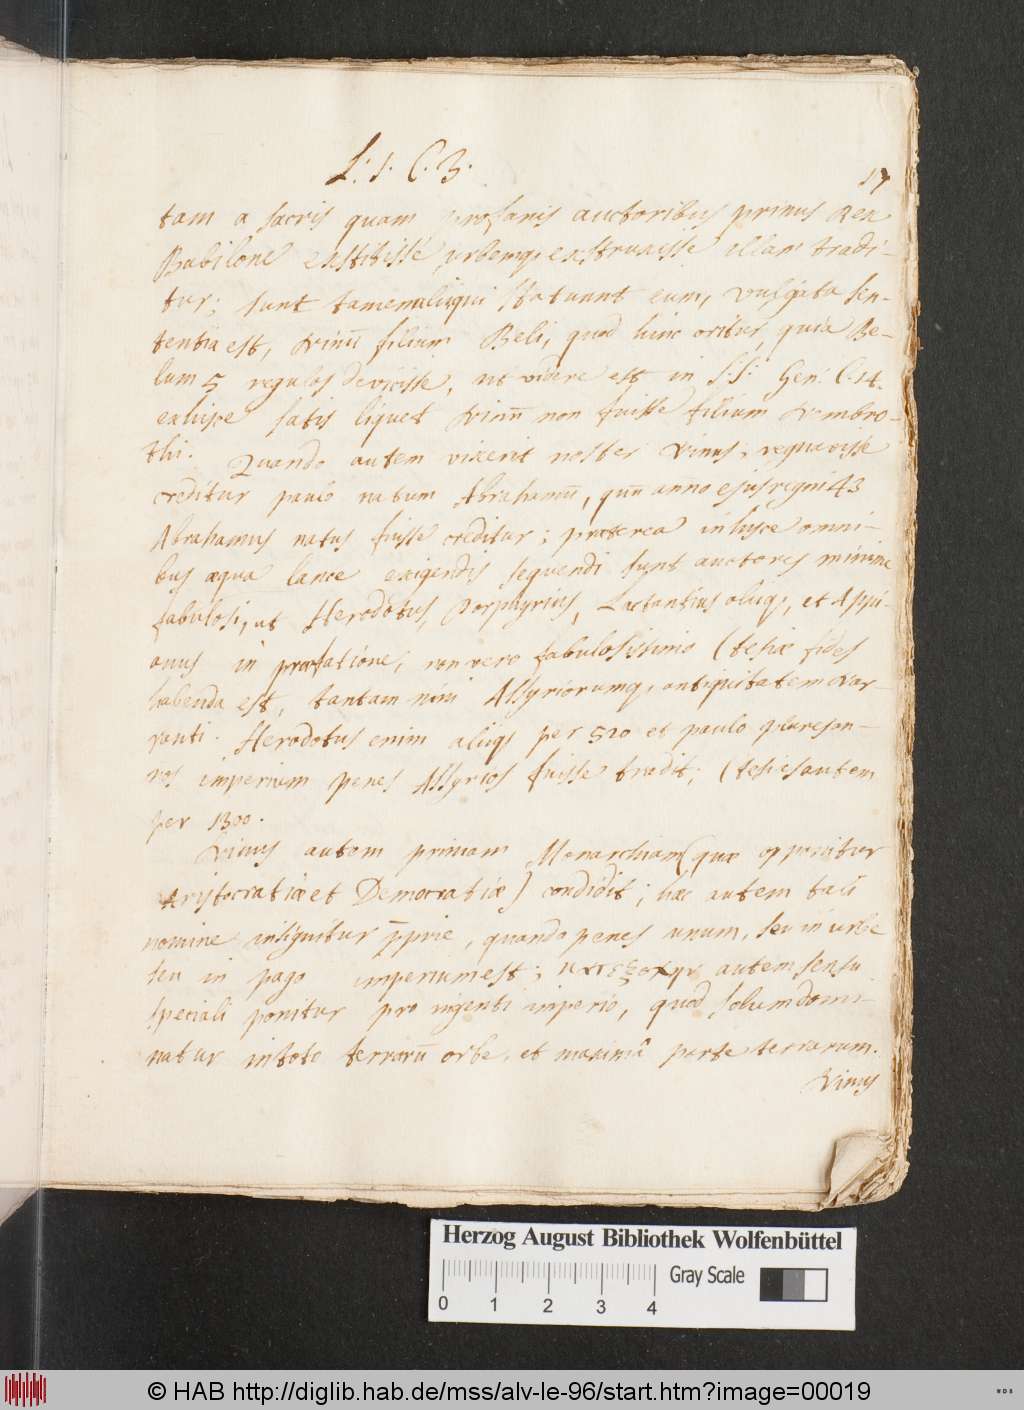 L. 1. C. 3.
17
tam a sacris quam profanis auctoribus primus Rex
Babilone exstitisse, urbemq; exstruxisse illam tradi-
tur; sunt tamen aliiqui statuant eum, vulgata sen-
tentia est, Ninū filium Beli, quod hinc oritur, quia Be-
lum 5 regulos devicisse, ut videre est in S.S. Gen. C. 14.
exhisce satis liquet Ninū non fuisse filium Nimbro-
thi. Quando autem vixerit noster Ninus, regnavisse
creditur paulo natum Abrahamū, qun̄ anno ejus regni 43
Abrahamus natus fuisse creditur; præterea in hisce omni-
bus æqua lance exigendis sequendi sunt auctores minime
fabulosi, ut Herodotus, Porphyrius, Lactantius aliiq;, et Appi-
anus in præfatione, non vero fabulosissimo Ctesiæ fides
habenda est, tantam nimi Assyriorumq; antiquitatem nar-
ranti. Herodotus enim aliiq; per 520 et paulo plures an-
nos imperium penes Assyrios fuisse tradit; Ctesies autem
per 1300.
Ninus autem primam Monarchiam (quæ opponitur
Aristocratiæ et Democratiæ) condidit; hæc autem tali
nomine insignitur p̄prie, quando penes unum, seu in urbe
seu in pago imperium est; κατεξοχην autem sensu
speciali ponitur pro ingenti imperio, quod solum domi-
natur in toto terrarū orbe, et maximâ parte terrarum.
Ninus
Herzog August Bibliothek Wolfenbüttel
0 1 2 3 4
Gray Scale
© HAB http://diglib.hab.de/mss/alv-le-96/start.htm?image=00019